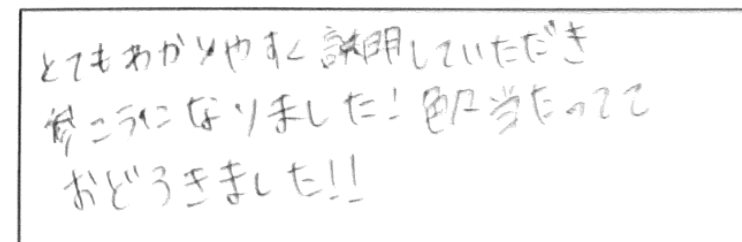 とてもわかりやすく説明していただき
参こうになりました!色々当たってて
おどろきました!!